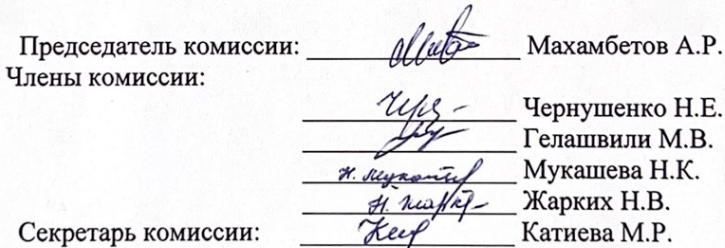 Председатель комиссии: Махамбетов А.Р.
Члены комиссии:
Чернушенко Н.Е.
Гелашвили М.В.
Мукашева Н.К.
Жарких Н.В.
Секретарь комиссии: Катиева М.Р.